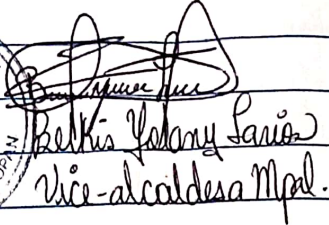 Belkis Yolany Larios
Vice-alcaldesa Mpal.